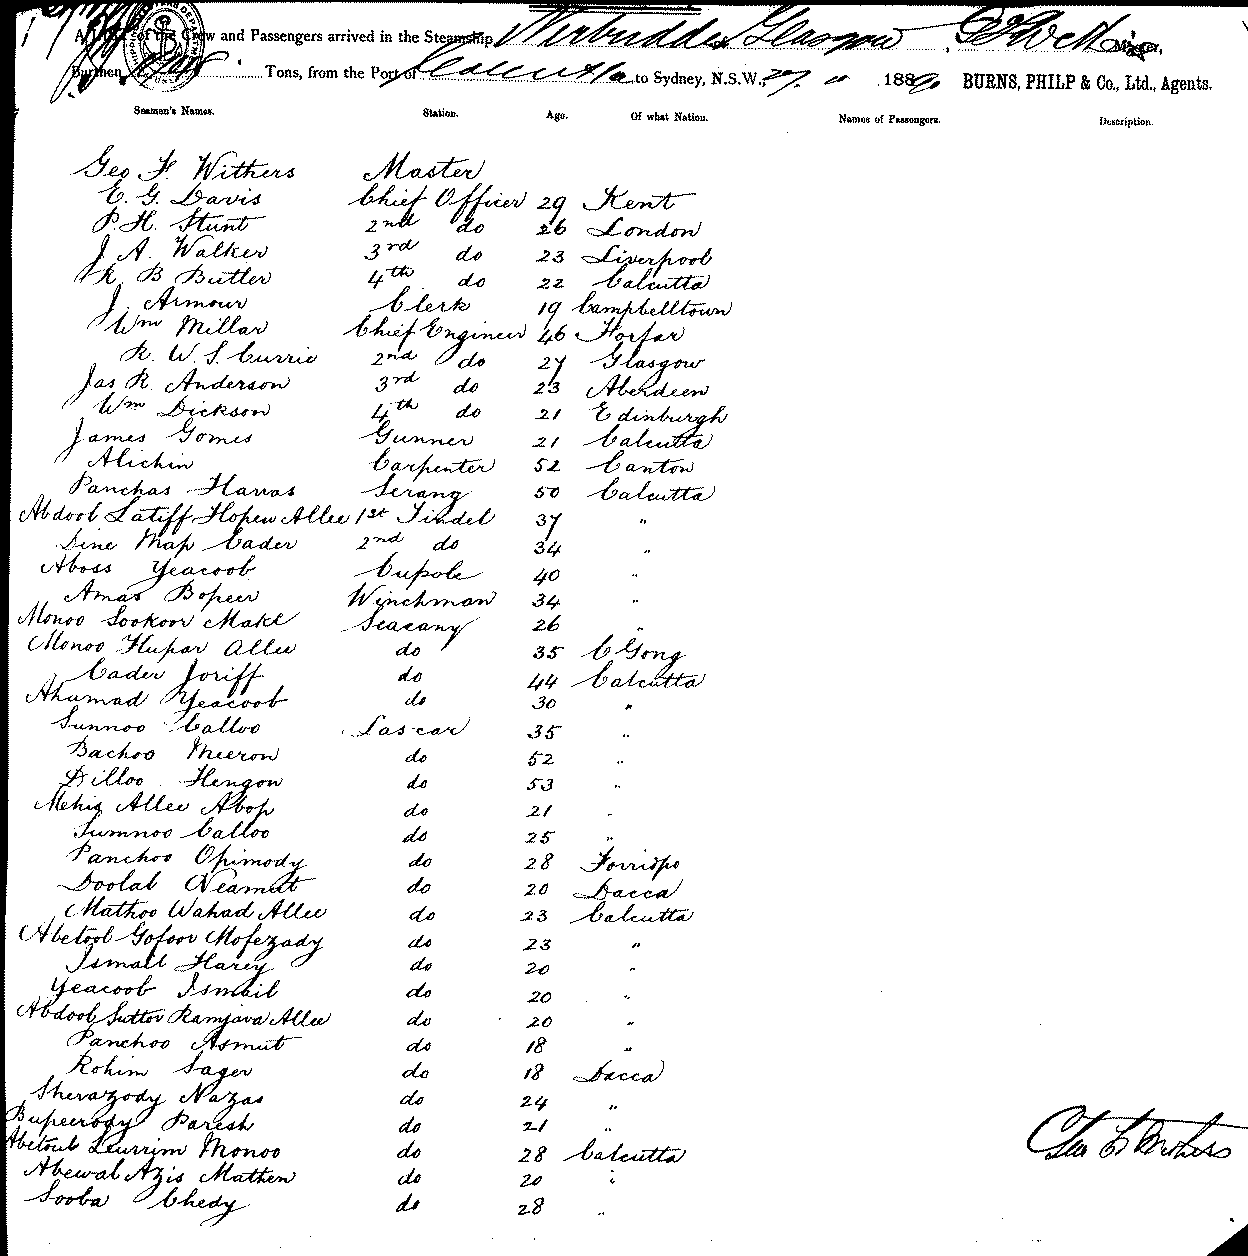 A List of the Crew and Passengers arrived in the Steamship Nerbudda, Glasgow Master,
Burthen Tons, from the Port of Calcutta to Sydney, N.S.W., 27 " 1890 BURNS, PHILP & Co., Ltd., Agents.
Seamen's Names. Station. Age. Of what Nation. Names of Passengers. Description.
Geo F. Withers Master
E. G. Davis Chief Officer 29 Kent
P. H. Stunt 2nd do 26 London
J. A. Walker 3rd do 23 Liverpool
R B Butler 4th do 22 Calcutta
J. Armour Clerk 19 Campbelltown
Wm Millar Chief Engineer 46 Forfar
R. W. S. Currie 2nd do 27 Glasgow
Jas R. Anderson 3rd do 23 Aberdeen
Wm Dickson 4th do 21 Edinburgh
James Gomes Gunner 21 Calcutta
Alichin Carpenter 52 Canton
Panchas Harras Serang 50 Calcutta
Abdool Latiff Hopew Allee 1st Tindel 37 "
Dine Map Cader 2nd do 34 "
Aboss Yeacoob Cupole 40 "
Amas Bopeer Winchman 34 "
Monoo Sookoor Makl Seacany 26 "
Monoo Hupar Allee do 35 C Gong
Cader Joriff do 44 Calcutta
Ahumad Yeacoob do 30 "
Sunnoo Calloo Lascar 35 "
Bachoo Meeron do 52 "
Dilloo Hengon do 53 "
Mehig Allee Abop do 21 "
Sumnoo Calloo do 25 "
Panchoo Opimody do 28 Forridpo
Doolal Neamut do 20 Dacca
Mathoo Wahad Allee do 23 Calcutta
Abetool Gofoor Mofezady do 23 "
Ismall Harey do 20 "
Yeacoob Ismail do 20 "
Abdool Suttor Ramjava Allee do 20 "
Panchoo Asmut do 18 "
Rohim Sager do 18 Dacca
Sherazody Nazas do 24 "
Bupeerody Paresh do 21 "
Abetoul Leurrim Monoo do 28 Calcutta
Abewal Azis Mathen do 20 "
Sooba Chedy do 28 "
Geo F. Withers